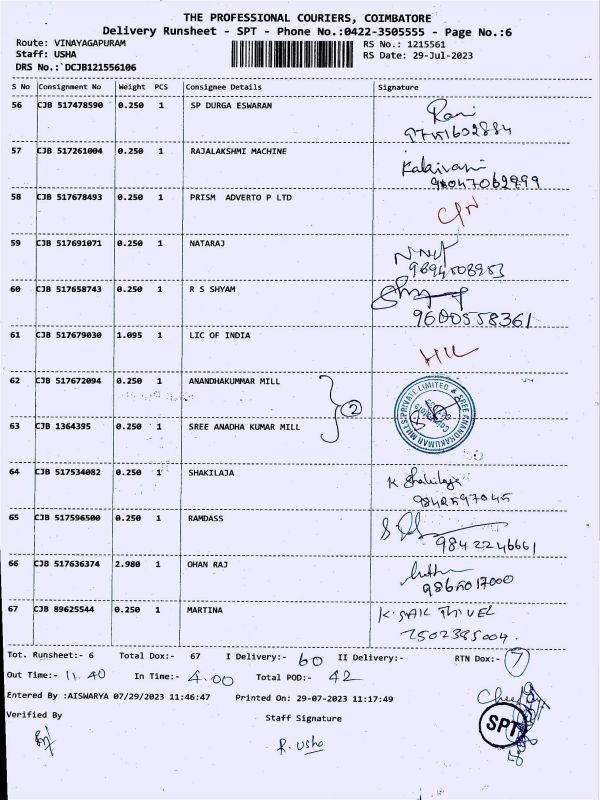 THE PROFESSIONAL COURIERS, COIMBATORE
Delivery Runsheet - SPT - Phone No.:0422-3505555 - Page No.:6
Route: VINAYAGAPURAM RS No.: 1215561
Staff: USHA RS Date: 29-Jul-2023
DRS No.: DCJB121556106
S No Consignment No Weight PCS Consignee Details Signature
56 CJB 517478590 0.250 1 SP DURGA ESWARAN Rani
57 CJB 517261004 0.250 1 RAJALAKSHMI MACHINE Kalaivani
58 CJB 517678493 0.250 1 PRISM ADVERTO P LTD
59 CJB 517691071 0.250 1 NATARAJ
60 CJB 517658743 0.250 1 R S SHYAM
9600558361
61 CJB 517679030 1.095 1 LIC OF INDIA
62 CJB 517672094 0.250 1 ANANDHAKUMMAR MILL
2
63 CJB 1364395 0.250 1 SREE ANADHA KUMAR MILL
64 CJB 517534082 0.250 1 SHAKILAJA K Shakilaja
9842597045
65 CJB 517596500 0.250 1 RAMDASS
9842246661
66 CJB 517636374 2.980 1 OHAN RAJ
9865017000
67 CJB 89625544 0.250 1 MARTINA
7502385004.
Tot. Runsheet:- 6 Total Dox:- 67 I Delivery:- 60 II Delivery:- RTN Dox:- 7
Out Time:- 11.40 In Time:- 4.00 Total POD:- 42
Entered By :AISWARYA 07/29/2023 11:46:47 Printed On: 29-07-2023 11:17:49
Verified By Staff Signature
SPT
R. Usha